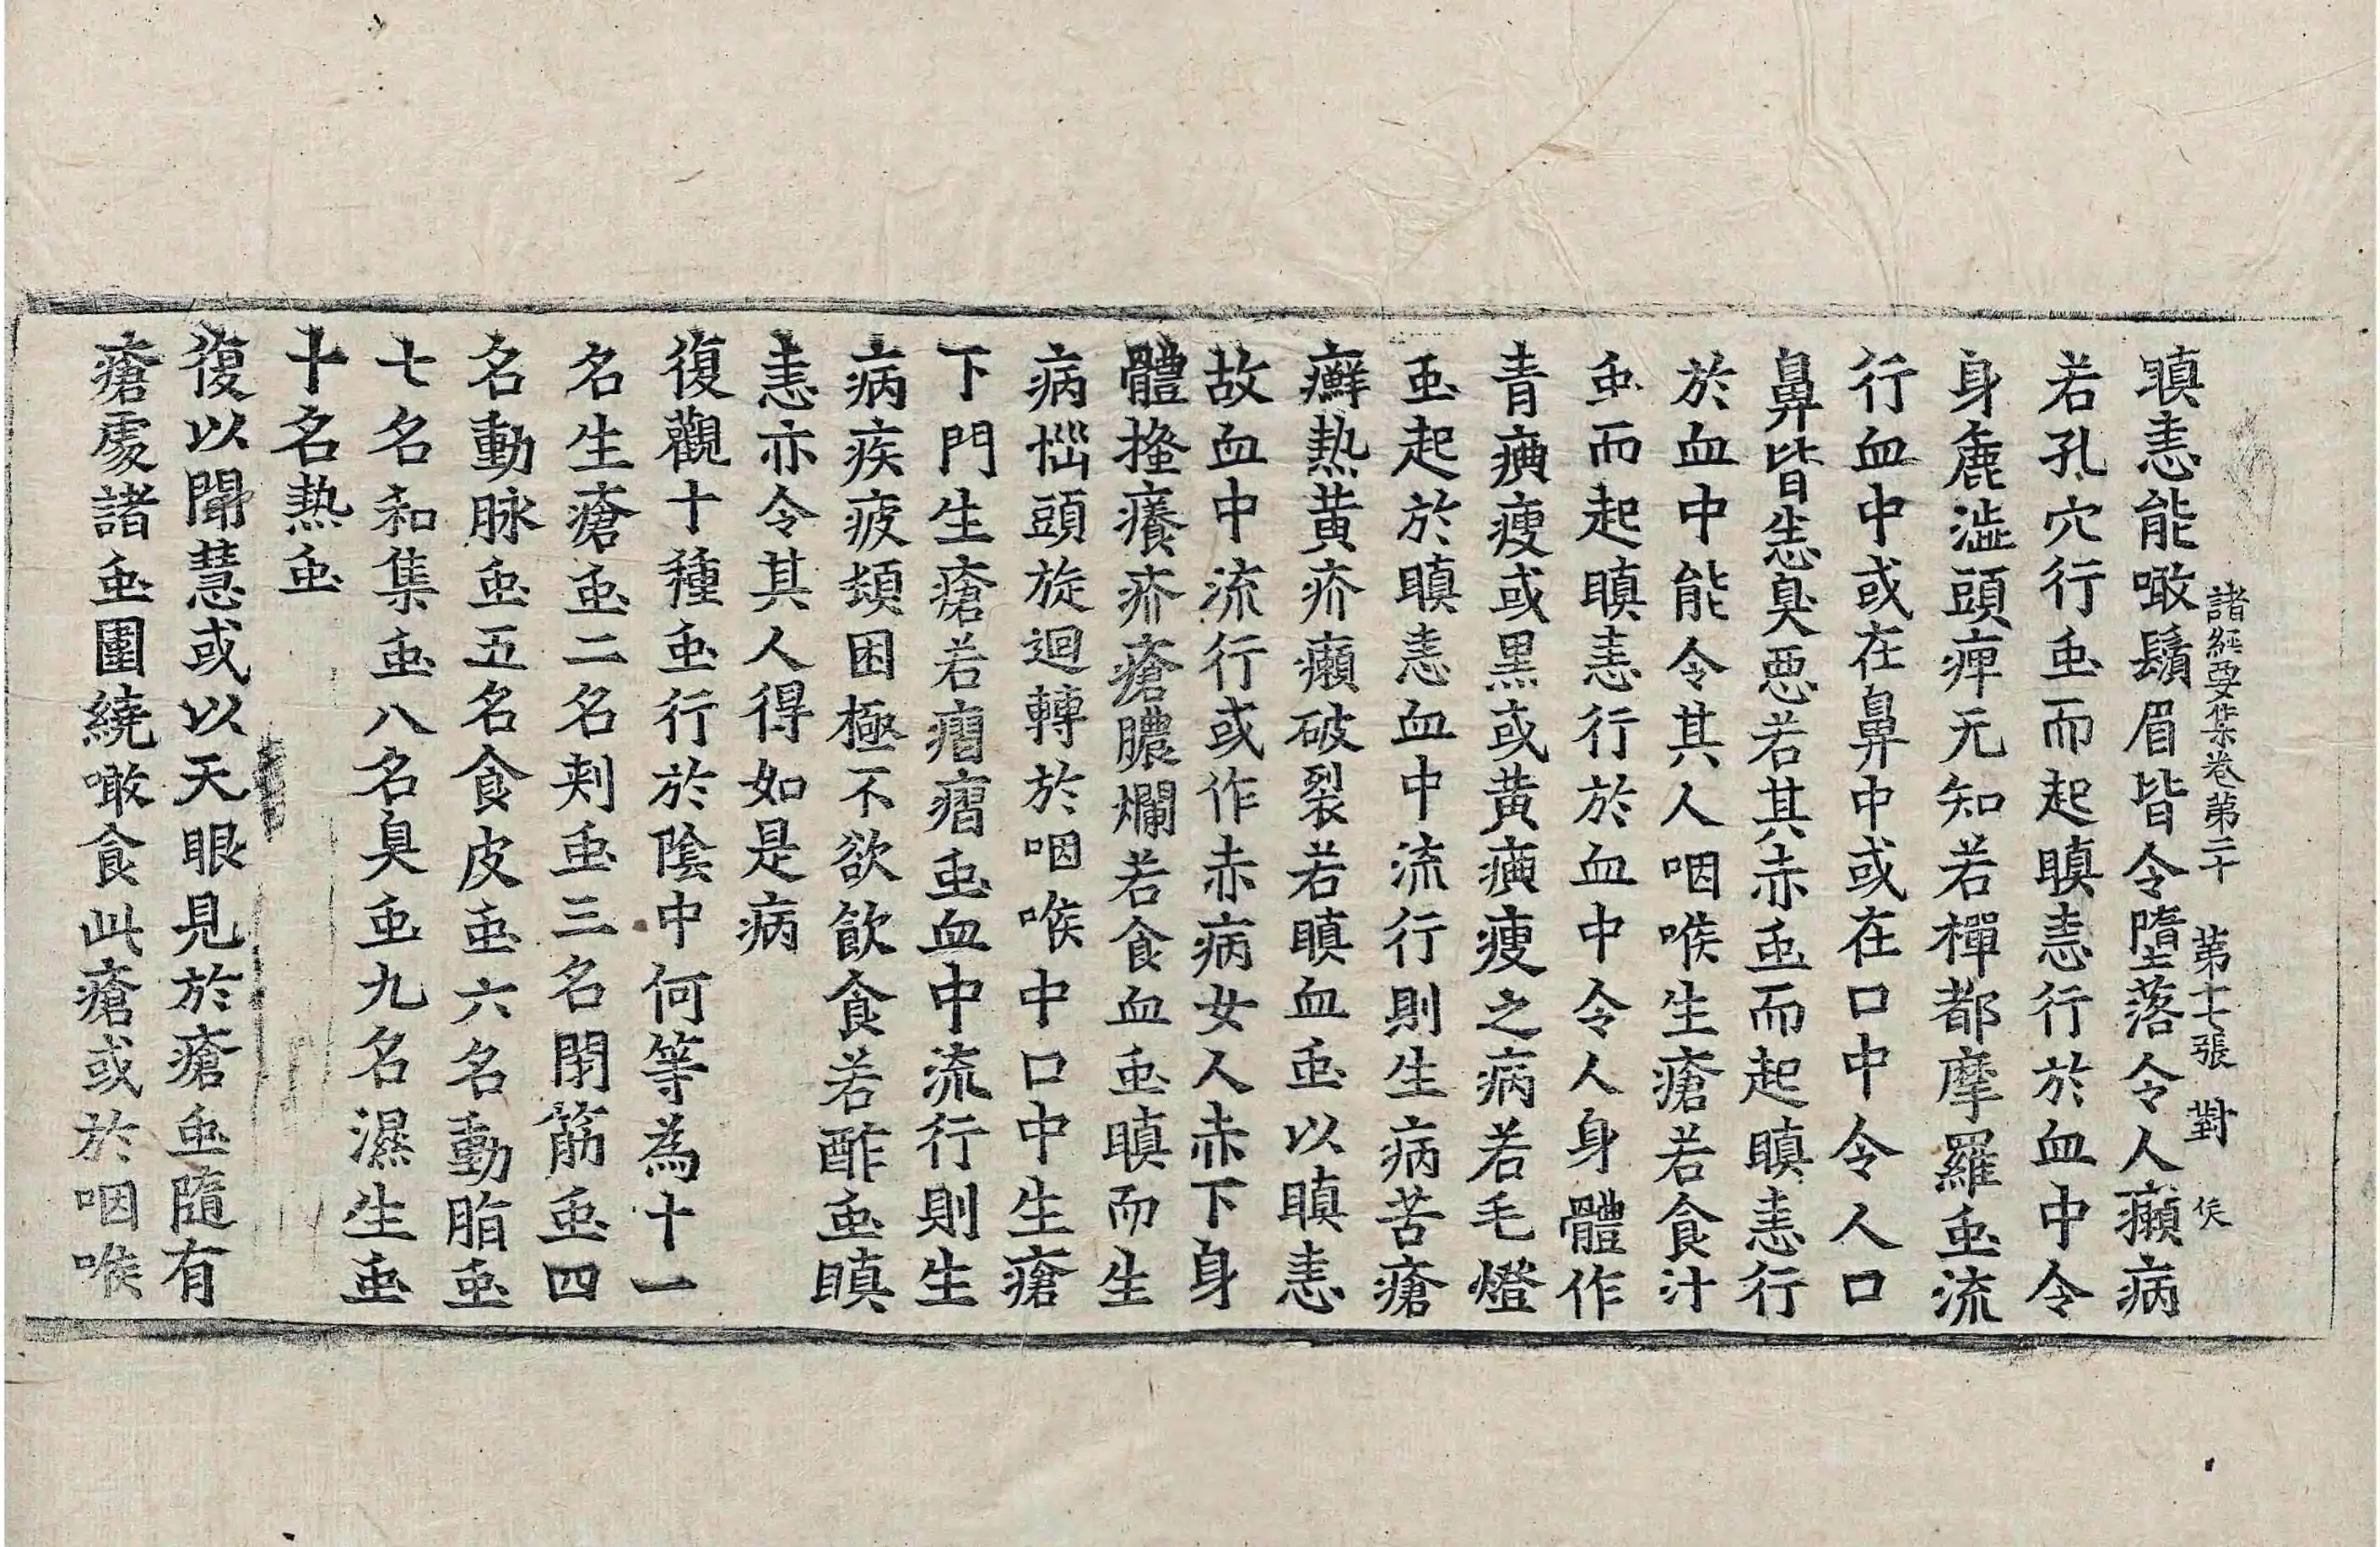 諸經要集卷第二十　第十七張　對　俟
瞋恚能噉鬚眉皆令墮落令人癩病
若孔穴行䖝而起瞋恚行於血中令
身麁澁頭痺无知若樿都摩羅䖝流
行血中或在鼻中或在口中令人口
鼻皆𢙣臭惡若其赤䖝而起瞋恚行
於血中能令其人咽喉生瘡若食汁
䖝而起瞋恚行於血中令人身體作
青㾧瘦或黒或黄㾧瘦之病若毛燈
䖝起於瞋恚血中流行則生病苦瘡
癬熱黄疥癩破裂若瞋血䖝以瞋恚
故血中流行或作赤病女人赤下身
體搔癢疥瘡膿爛若食血䖝瞋而生
病惱頭旋迴轉於咽喉中口中生瘡
下門生瘡若㿇㿇䖝血中流行則生
病疾疲頓困極不欲飲食若酢䖝瞋
恚亦令其人得如是病
復觀十種䖝行於陰中何等為十一
名生瘡䖝二名刾䖝三名閇筋䖝四
名動脉䖝五名食皮䖝六名動脂䖝
七名和集䖝八名臭䖝九名濕生䖝
十名热䖝
復以聞慧或以天眼見於瘡䖝隨有
瘡處諸䖝圍繞噉食此瘡或於咽喉